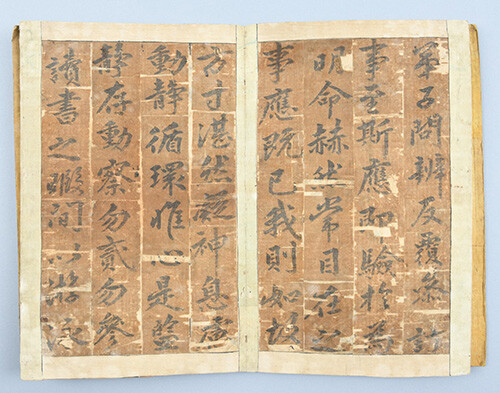 弟子問辨反覆參訂
事至斯應即驗於為
明命赫然常目在之
事應既已我則如故
方寸湛然凝神息慮
動靜循環惟心是監
靜存動察勿貳勿參
讀書之暇間以游泳